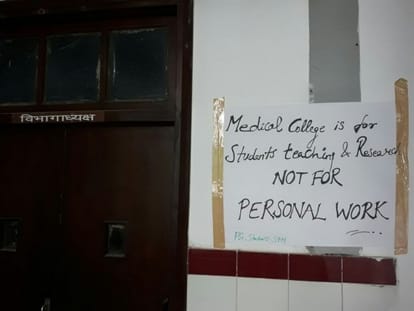 विभागाध्यक्ष
Medical College is for
Students teaching & Research
NOT FOR
PERSONAL WORK